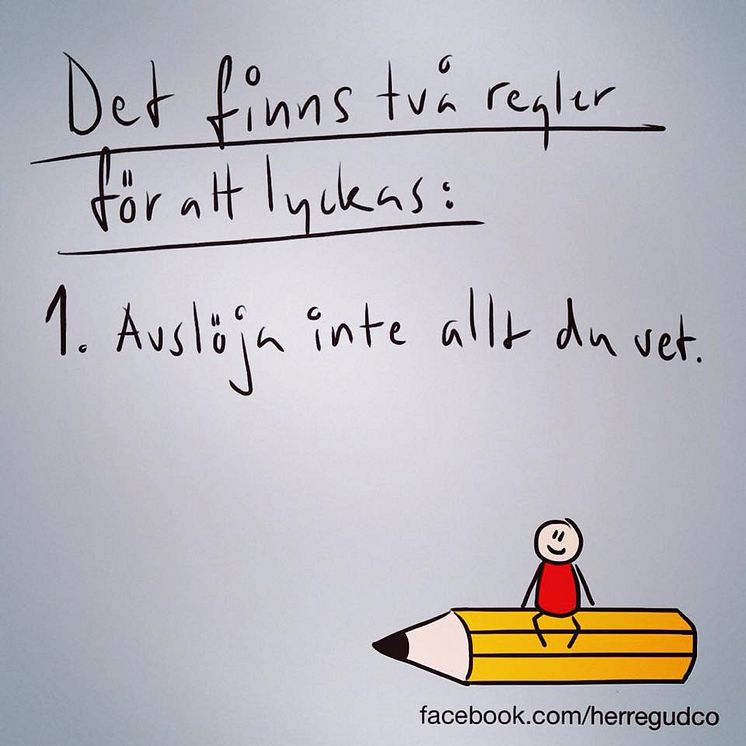 Det finns två regler
för att lyckas:
1. Avslöja inte allt du vet.
facebook.com/herregudco